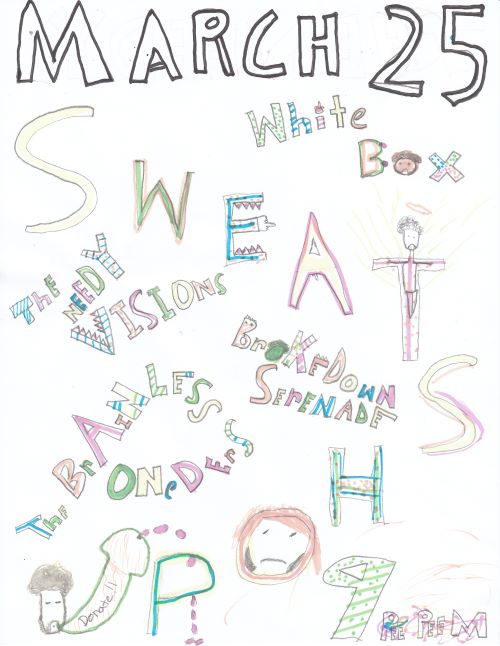 MARCH 25
White
Box
SWEATSHOP
The
NEEDY
VISIONS
BroKEDOWN
SerENADE
The BrAiNLESS
ONeDErs
Donate!!
9 PEE PEE M